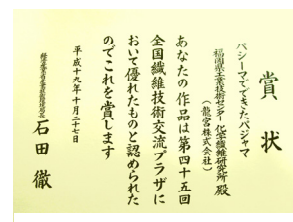 賞状
パシーマでできたパジャマ
福岡県工業技術センター 化学繊維研究所 殿
(龍宮株式会社)
あなたの作品は第四十五回
全国繊維技術交流プラザに
おいて優れたものと認められた
のでこれを賞します
平成十九年十月二十七日
石田 徹